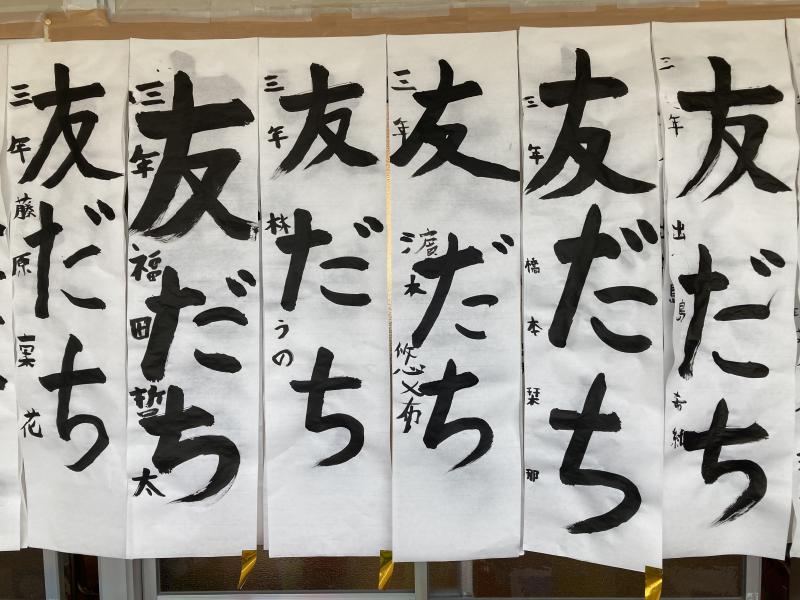 友だち
三年 出島
友だち
三年 橋本 栞那
友だち
三年
友だち
三年 林 うの
友だち
三年 福田 哲太
友だち
三年 藤原 花